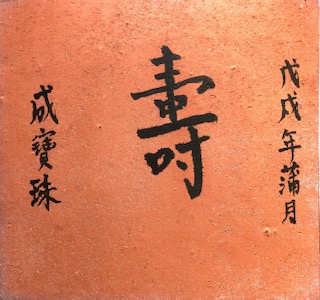 戊戌年蒲月
壽
成寶珠